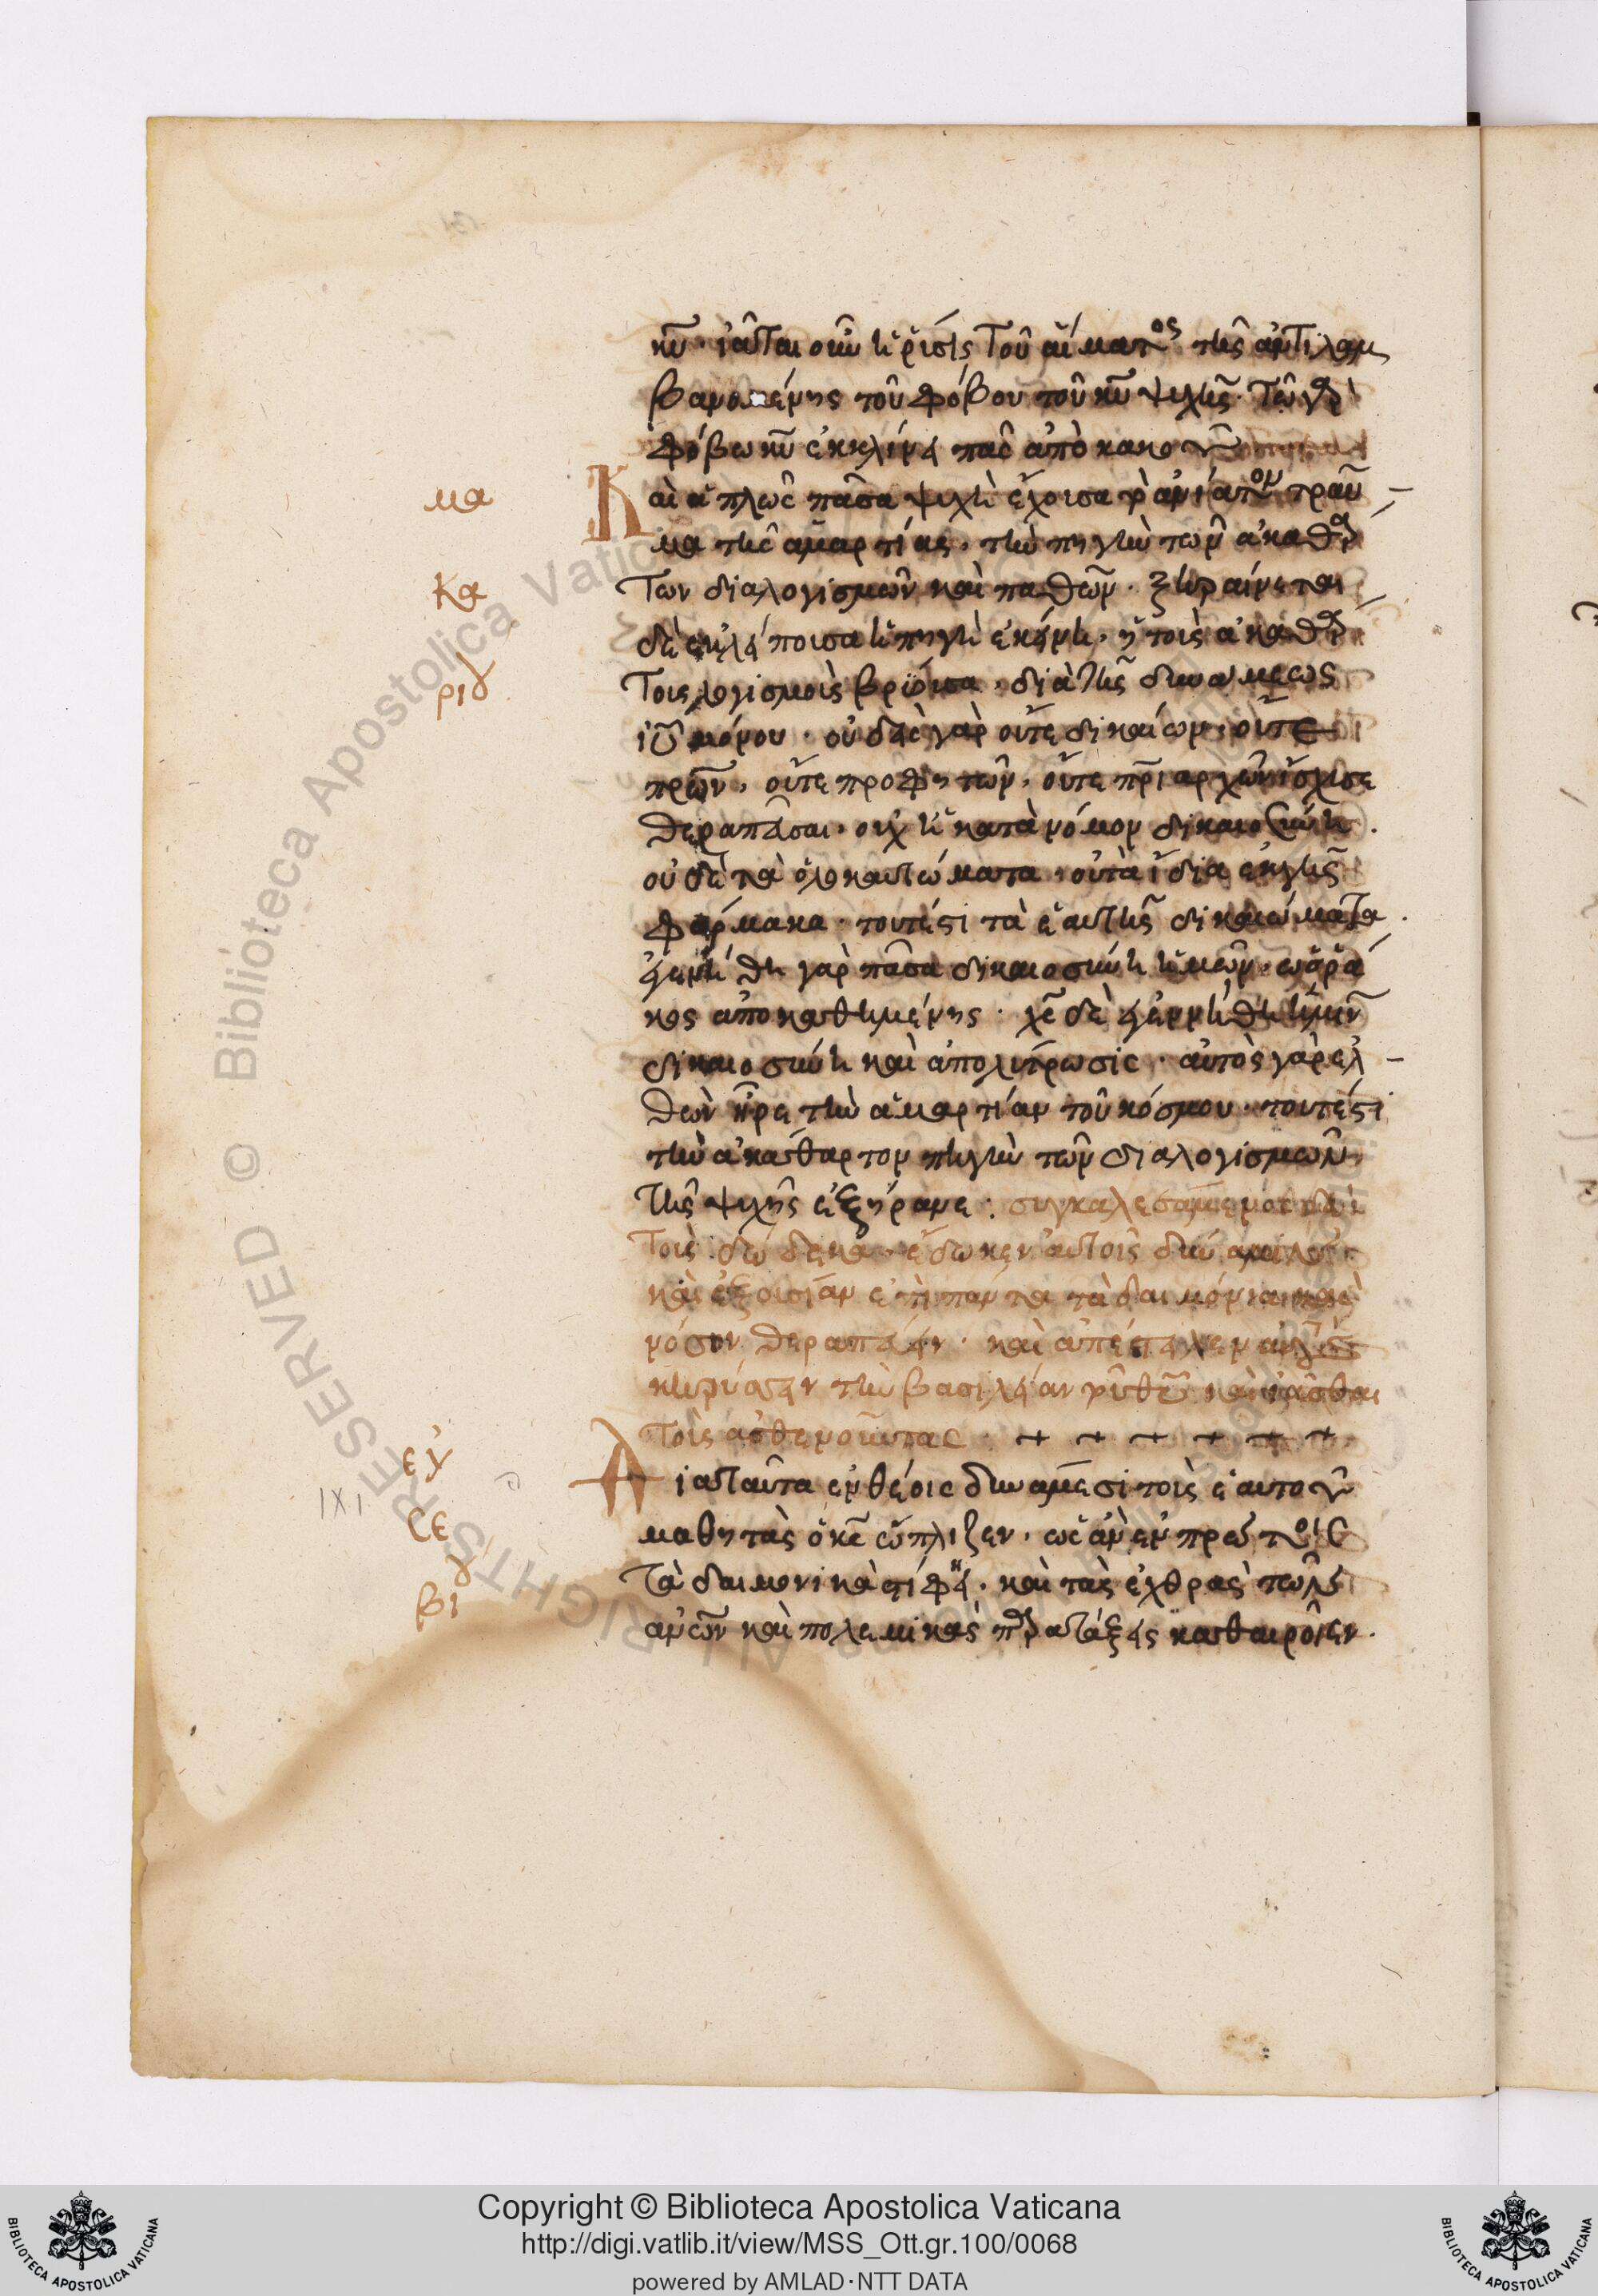 κῦ· ἰᾶται οὖν ἡ ῥύσις τοῦ αἵματος τῆς ἀντιλαμ
βανομένης τοῦ φόβου τοῦ κῦ ψυχῆς· τῶ γὰρ
φόβω κῦ ἐκκλίνει πᾶς ἀπὸ κακοῦ
Καὶ ἁπλῶς πᾶσα ψυχὴ ἔχουσα τὸ ἀνίατον τραῦ
μα
μα τῆς ἁμαρτίας, τὴν πηγὴν τῶν ἀκαθάρ
των διαλογισμῶν καὶ παθῶν· ξηραίνεται
κα
δὲ ἐκλείπουσα ἡ πηγὴ ἐκείνη, ἡ τοῖς ἀκαθάρ
τοις λογισμοῖς βρύουσα, διὰ τῆς δυνάμεως
ριδ
ἰῦ μόνου· οὐδεὶς γὰρ οὔτε δικαίων, οὔτε
πρῶν, οὔτε προφητῶν, οὔτε πριαρχῶν ἴσχυσε
θεραπεῦσαι, οὐχ ἡ κατὰ νόμον δικαιοσύνη.
οὐδὲ τὰ ὁλοκαυτώματα, οὐ τὰ ἴδια ἐκ γῆς
φάρμακα· τουτέστι τὰ ἑαυτῆς δικαιώματα.
ἐγεννήθη γὰρ πᾶσα δικαιοσύνη ἡμῶν, ὡς ῥά
κος ἀποκαθημένης· χς δὲ ἐγεννήθη ἡμῖν
δικαιοσύνη καὶ ἀπολύτρωσις· αὐτὸς γὰρ ἐλ
θὼν ἦρε τὴν ἁμαρτίαν τοῦ κόσμου· τουτέστι
τὴν ἀκάθαρτον πηγὴν τῶν διαλογισμῶν
τῆς ψυχῆς ἐξήρανε: συγκαλεσάμενος δὲ
τοὺς δώδεκα, ἔδωκεν αὐτοῖς δύναμιν
καὶ ἐξουσίαν ἐπὶ πάντα τὰ δαιμόνια καὶ
νόσους θεραπεύειν· καὶ ἀπέστειλεν αὐτοὺς
κηρύσσειν τὴν βασιλείαν τοῦ θῦ καὶ ἰᾶσθαι
τοὺς ἀσθενοῦντας
εὐ
Διαταῦτα ἐνθέοις δυνάμεσι τοὺς ἑαυτοῦ
ΙΧΙ
σε
μαθητὰς ὁ κς ὥπλιζεν, ὡς ἂν ἐν πρώτοις
βι
τὰ δαιμονικὰ στίφη· καὶ τὰς ἐχθρὰς τῶν
ἀνῶν καὶ πολεμικὰς παρατάξεις καθαιροῖεν.
Copyright © Biblioteca Apostolica Vaticana
http://digi.vatlib.it/view/MSS_Ott.gr.100/0068
powered by AMLAD·NTT DATA
BIBLIOTECA APOSTOLICA VATICANA
BIBLIOTECA APOSTOLICA VATICANA